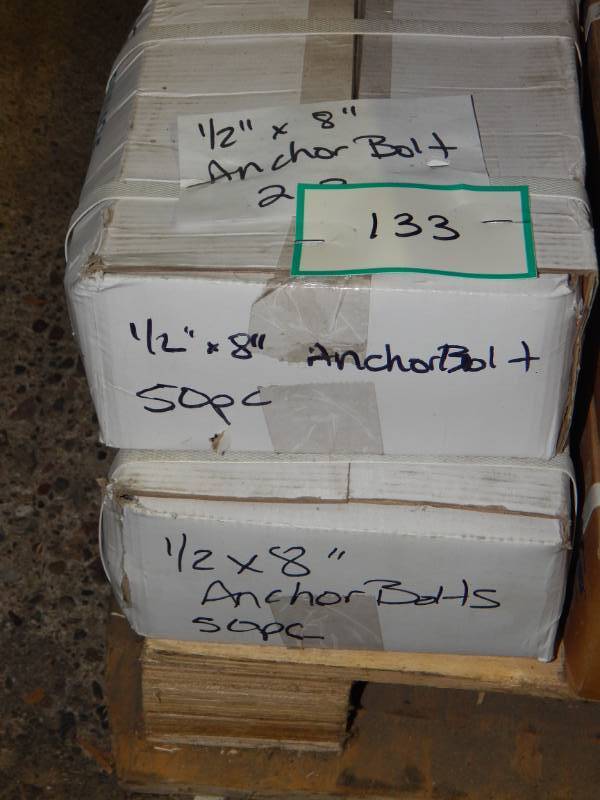 1/2" x 8"
Anchor Bolt
2
133
1/2" x 8" Anchor Bolt
50pc
1/2 x 8"
Anchor Bolts
50pc